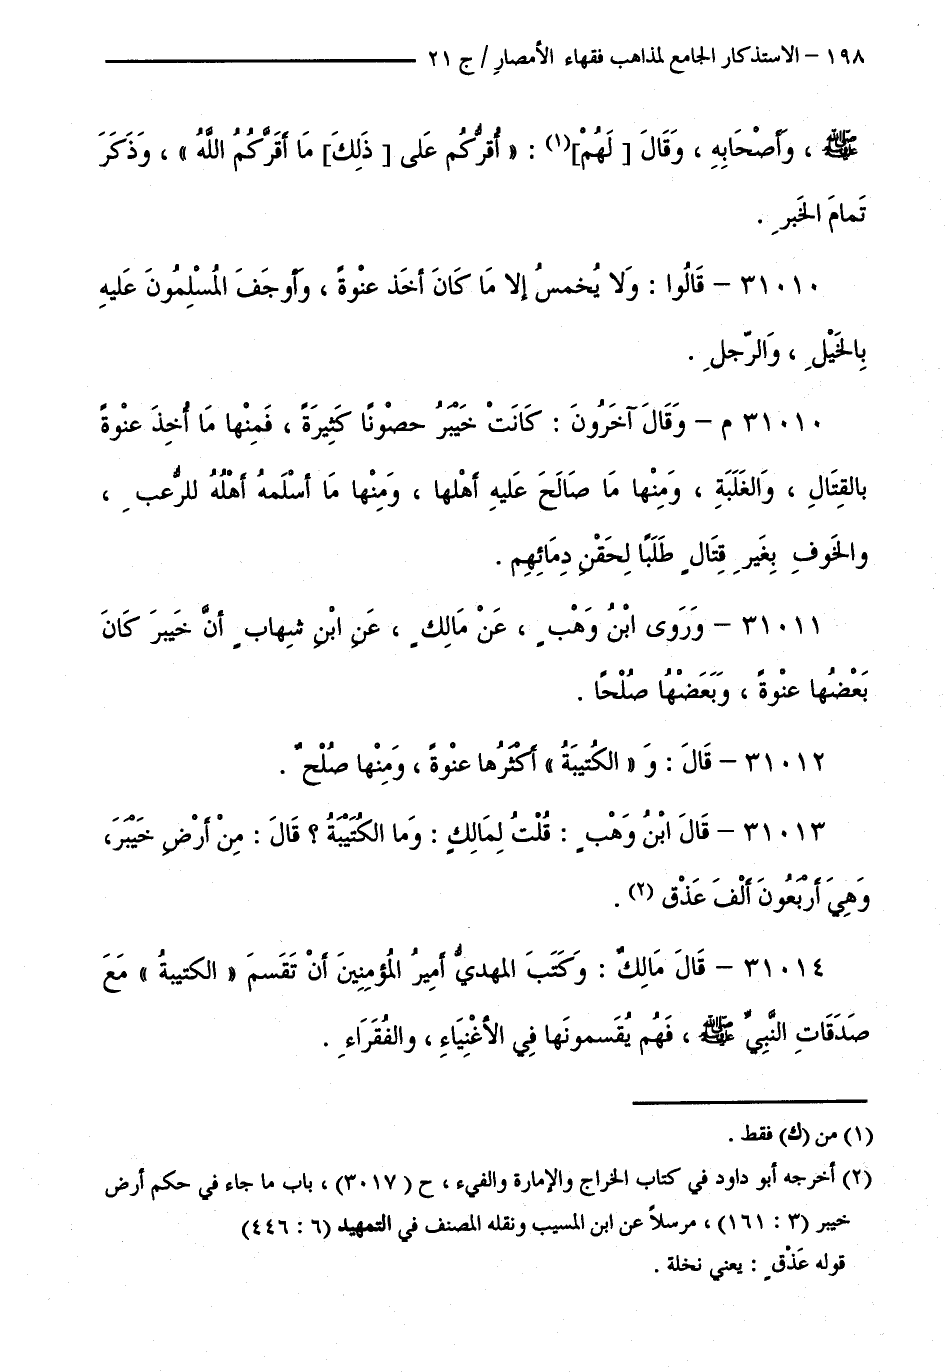 ١٩٨ – الاستذكار الجامع لمذاهب فقهاء الأمصارِ / ج ٢١
ﷺ ، وَأَصْحَابِهِ ، وَقَالَ [ لَهُمْ](١) : « أُقرُّكُم عَلى [ ذَلِكَ] مَا أَقَرَّكُمُ اللَّهُ » ، وَذَكَرَ
تَمامَ الخَبرِ .
٣١٠١٠ – قَالُوا : وَلا يُخمسُ إلا مَا كَانَ أخَذ عنْوةً ، وَأَوجَفَ المُسْلِمُونَ عَليهِ
بِالخَيْلِ ، وَالرّجلِ .
٣١٠١٠ م – وَقَالَ آخَرُونَ : كَانَتْ خَيْبَرُ حصْونًا كَثِيرَةً ، فَمِنْها مَا أُخِذَ عنْوةً
بالقِتَالِ ، وَالغَلَبَةِ ، وَمِنْها مَا صَالَحَ عَليهِ أَهْلها ، وَمِنْها مَا أسْلَمهُ أهْلُهُ للرُّعبِ ،
والخَوفِ بِغَيرِ قِتَالٍ طَلَبًا لِحَقْنِ دِمَائِهِم .
٣١٠١١ – وَرَوَى ابْنُ وَهْبٍ ، عَنْ مَالِكٍ ، عَنِ ابْنِ شِهابٍ أنَّ خَيبرَ كَانَ
بَعْضُها عنْوةً ، وَبَعَضْهُا صُلْحًا .
٣١٠١٢ – قَالَ : وَ « الكُتيبَةُ » أكْثَرُها عنْوةً ، وَمِنْها صُلْحٌ .
٣١٠١٣ – قَالَ ابْنُ وَهْبٍ : قُلْتُ لِمَالِكٍ : وَما الكُتَيْبَةُ ؟ قَالَ : مِنْ أَرْضِ خَيْبَرَ،
وَهِيَ أَرْبَعُونَ أَلْفَ عَذْق (٢) .
٣١٠١٤ – قَالَ مَالِكٌ : وَكَتَبَ المهديُّ أَمِيرُ المُؤمِنِينَ أنْ تَقَسمَ « الكتيبةُ » مَعَ
صَدَقَاتِ النَّبِيِّ ﷺ ، فَهُم يُقَسمونَها فِي الأغْنِيَاءِ ، والفُقَرَاءِ .
(١) من (ك) فقط .
(٢) أخرجه أبو داود في كتاب الخراج والإمارة والفيء ، ح ( ٣٠١٧) ، باب ما جاء في حكم أرض
خيبر (٣ : ١٦١) ، مرسلاً عن ابن المسيب ونقله المصنف في التمهيد (٦ : ٤٤٦)
قوله عَذْقٍ : يعني نخلة .